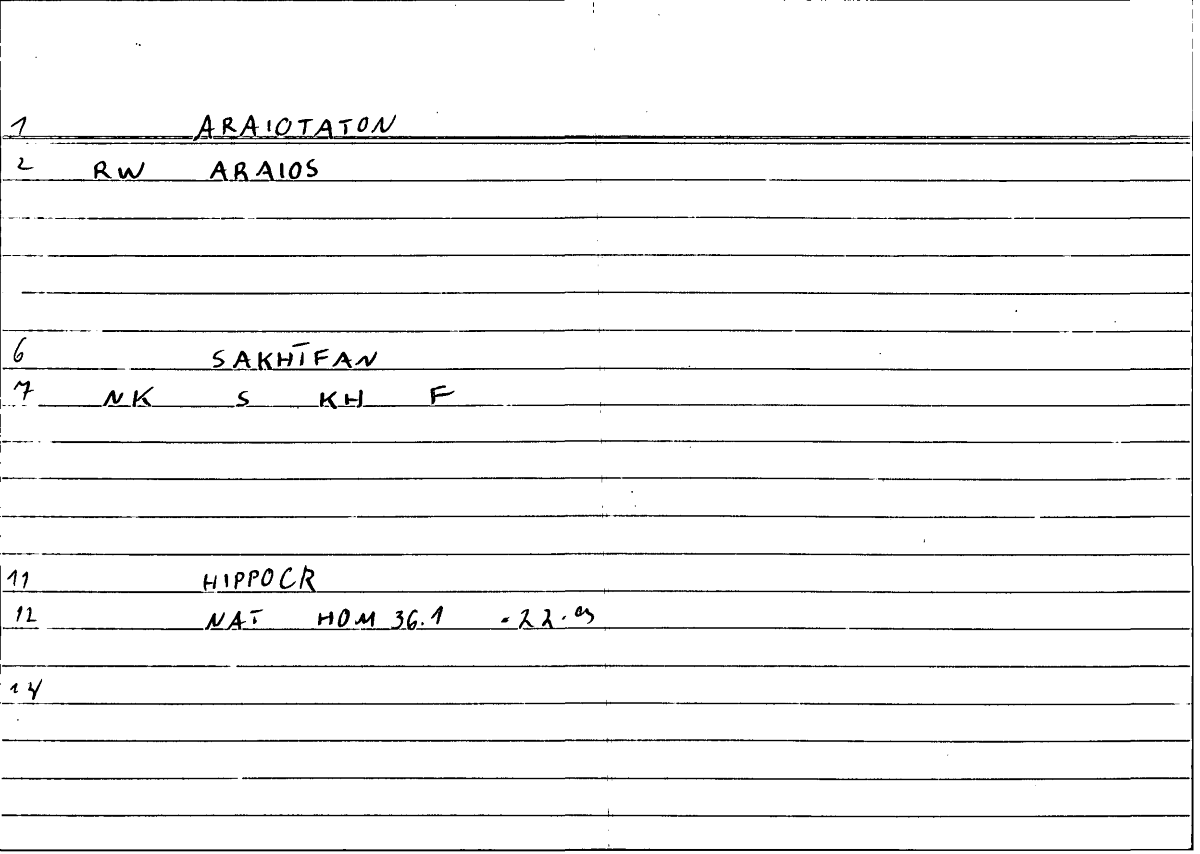 1 ARAIOTATON
2 RW ARAIOS
6 SAKHĪFAN
7 NK S KH F
11 HIPPOCR
12 NAT HOM 36.1
14